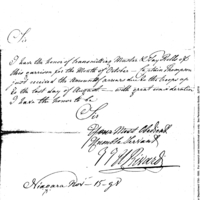 Sir
I have the honor of transmitting Muster & Pay Rolls of
this garrison for the Month of October. Captain Thompson
just received the amount of arrears due to the troops up
to the last day of August — with great consideration
I have the honor to be
Sir
Your Most Obedient
Humble Servant
Niagara Nov 15 - 98